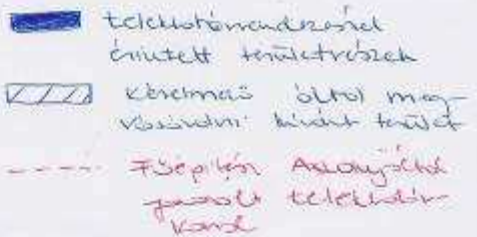 telekhatárrendezéssel
érintett területrészek
kérelmező által meg-
vásárolni kívánt terület
Főépítész
javasolt telekhatár-